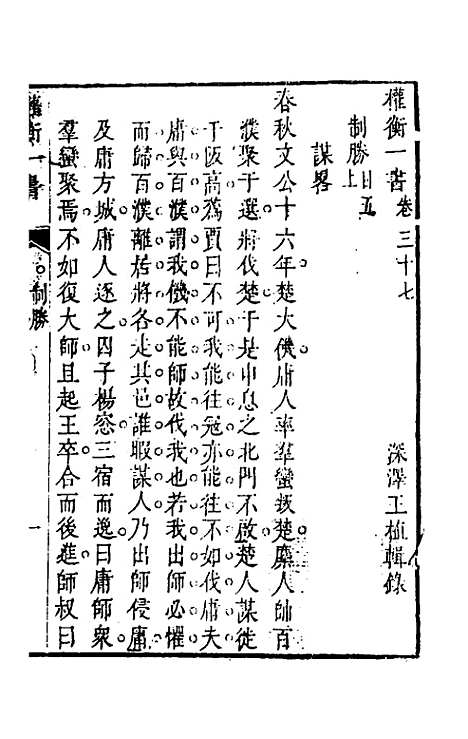 權衡一書卷三十七
深澤王植輯錄
制勝上
目五
謀畧
春秋文公十六年楚大饑庸人率羣蠻叛楚麇人帥百
濮聚于選將伐楚于是申息之北門不啟楚人謀徙
于阪高蒍賈曰不可我能往寇亦能往不如伐庸夫
庸與百濮謂我饑不能師故伐我也若我出師必懼
而歸百濮離居將各走其邑誰暇謀人乃出師侵庸
及庸方城庸人逐之囚子楊窓三宿而逸曰庸師衆
羣蠻聚焉不如復大師且起王卒合而後進師叔曰
權衡一書
制勝
一